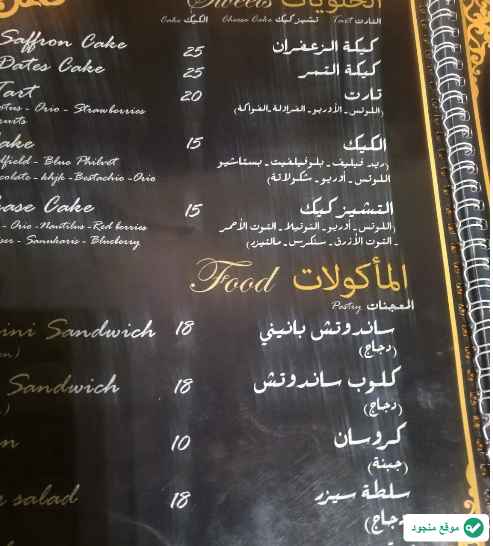 Sweets الحلويات
Cake الكيك Cheese Cake تشيز كيك Tart التارت
Saffron Cake 25 كيكة الزعفران
Dates Cake 25 كيكة التمر
Tart 20 تارت
- Orio - Strawberries (اللوتس - الأوريو - الفراولة - الفواكة)
15 الكيك
- Blue Philvet (ريد فيلفيت - بلو فيلفيت - بستاشيو
- khjk - Bestachio - Orio اللوتس - أوريو - شكولاتة)
Cake 15 التشيز كيك
- Orio - Nautilus - Red berries (اللوتس - أوريو - النوتيلا - التوت الأحمر
- Sanukaris - Blueberry - التوت الأزرق - سنكرس - مالتيزر)
Food المأكولات
Pastry المعجنات
Sandwich 18 ساندوتش بانيني
(دجاج)
Sandwich 18 كلوب ساندوتش
(دجاج)
10 كروسان
(جبنة)
salad 18 سلطة سيزر
(دجاج)
موقع منجود